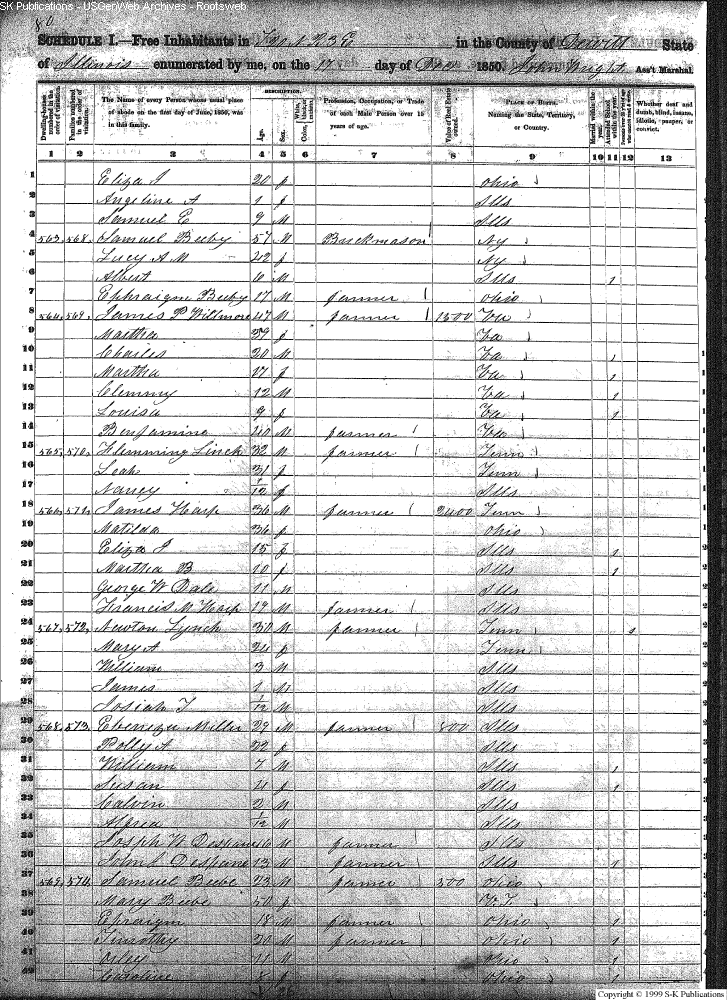 SK Publications - USGenWeb Archives - Rootsweb
80
SCHEDULE I.—Free Inhabitants in T 20 N R 3 E in the County of Dewitt State
of Illinois enumerated by me, on the 17 day of Dec 1850. John Wright Ass't Marshal.
Dwelling-houses numbered in the order of visitation. Families numbered in the order of visitation. The Name of every Person whose usual place of abode on the first day of June, 1850, was in this family. Age. Sex. White, black, or mulatto. Color, Profession, Occupation, or Trade of each Male Person over 15 years of age. Value of Real Estate owned. PLACE OF BIRTH. Naming the State, Territory, or Country. Married within the year. Attended School within the year. Whether deaf and dumb, blind, insane, idiotic, pauper, or convict.
1 2 3 4 5 6 7 8 9 10 11 12 13
1 Eliza J 20 f Ohio
2 Angeline A 1 f Ills
3 Samuel E 9 M Ills
4 563 568 Samuel Beeby 57 M Brickmason Ny
5 Lucy A M 42 f Ny
6 Albert 6 M Ills 1
7 Ephraigm Beeby 17 M farmer Ohio
8 564 569 James P Willmore 47 M farmer 1500 Va
9 Martha 39 f Va
10 Charles 20 M Va 1
11 Martha 17 f Va 1
12 Clemmy 12 M Va 1
13 Louisa 9 f Va 1
14 Benjamine 40 M farmer Va
15 565 570 Flemming Linch 32 M farmer Tenn
16 Leah 31 f Tenn
17 Nancy 1/12 f Ills
18 566 571 James Harp 36 M farmer 2400 Tenn
19 Matilda 36 f Ohio
20 Eliza J 15 f Ills 1
21 Martha B 10 f Ills 1
22 George W Dale 11 M Ills
23 Francis M Harp 19 M farmer Ills
24 567 572 Newton Lynch 30 M farmer Tenn
25 Mary A 24 f Tenn
26 William 3 M Ills
27 James 1 M Ills
28 Josiah T 1/12 M Ills
29 568 573 Ebenezer Miller 29 M farmer 800 Ills
30 Polly A 22 f Ills
31 William 7 M Ills 1
32 Susan 4 f Ills 1
33 Calvin 2 M Ills
34 Alfred 1/12 M Ills
35 Joseph W Despane M farmer Ills
36 John L Despane 13 M farmer Ills 1
37 569 574 Samuel Beebe 23 M farmer 500 Ohio
38 Mary Beebe 50 f
39 Ephraigm 18 M farmer Ohio 1
40 Timothy 20 M farmer Ohio 1
41 Orley 11 M Ohio 1
42 Caroline 8 f Ohio 1
Copyright © 1999 S-K Publications